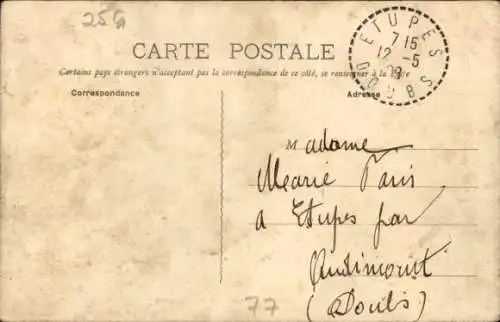 256
ETUPES
7 15
12 -5
09
DOUBS
CARTE POSTALE
Certains pays étrangers n'acceptant pas la correspondance de ce côté, se renseigner à la Poste
Correspondance
Adresse
Madame
Marie Paris
a Etupes par
Audincourt
(Doubs)
77